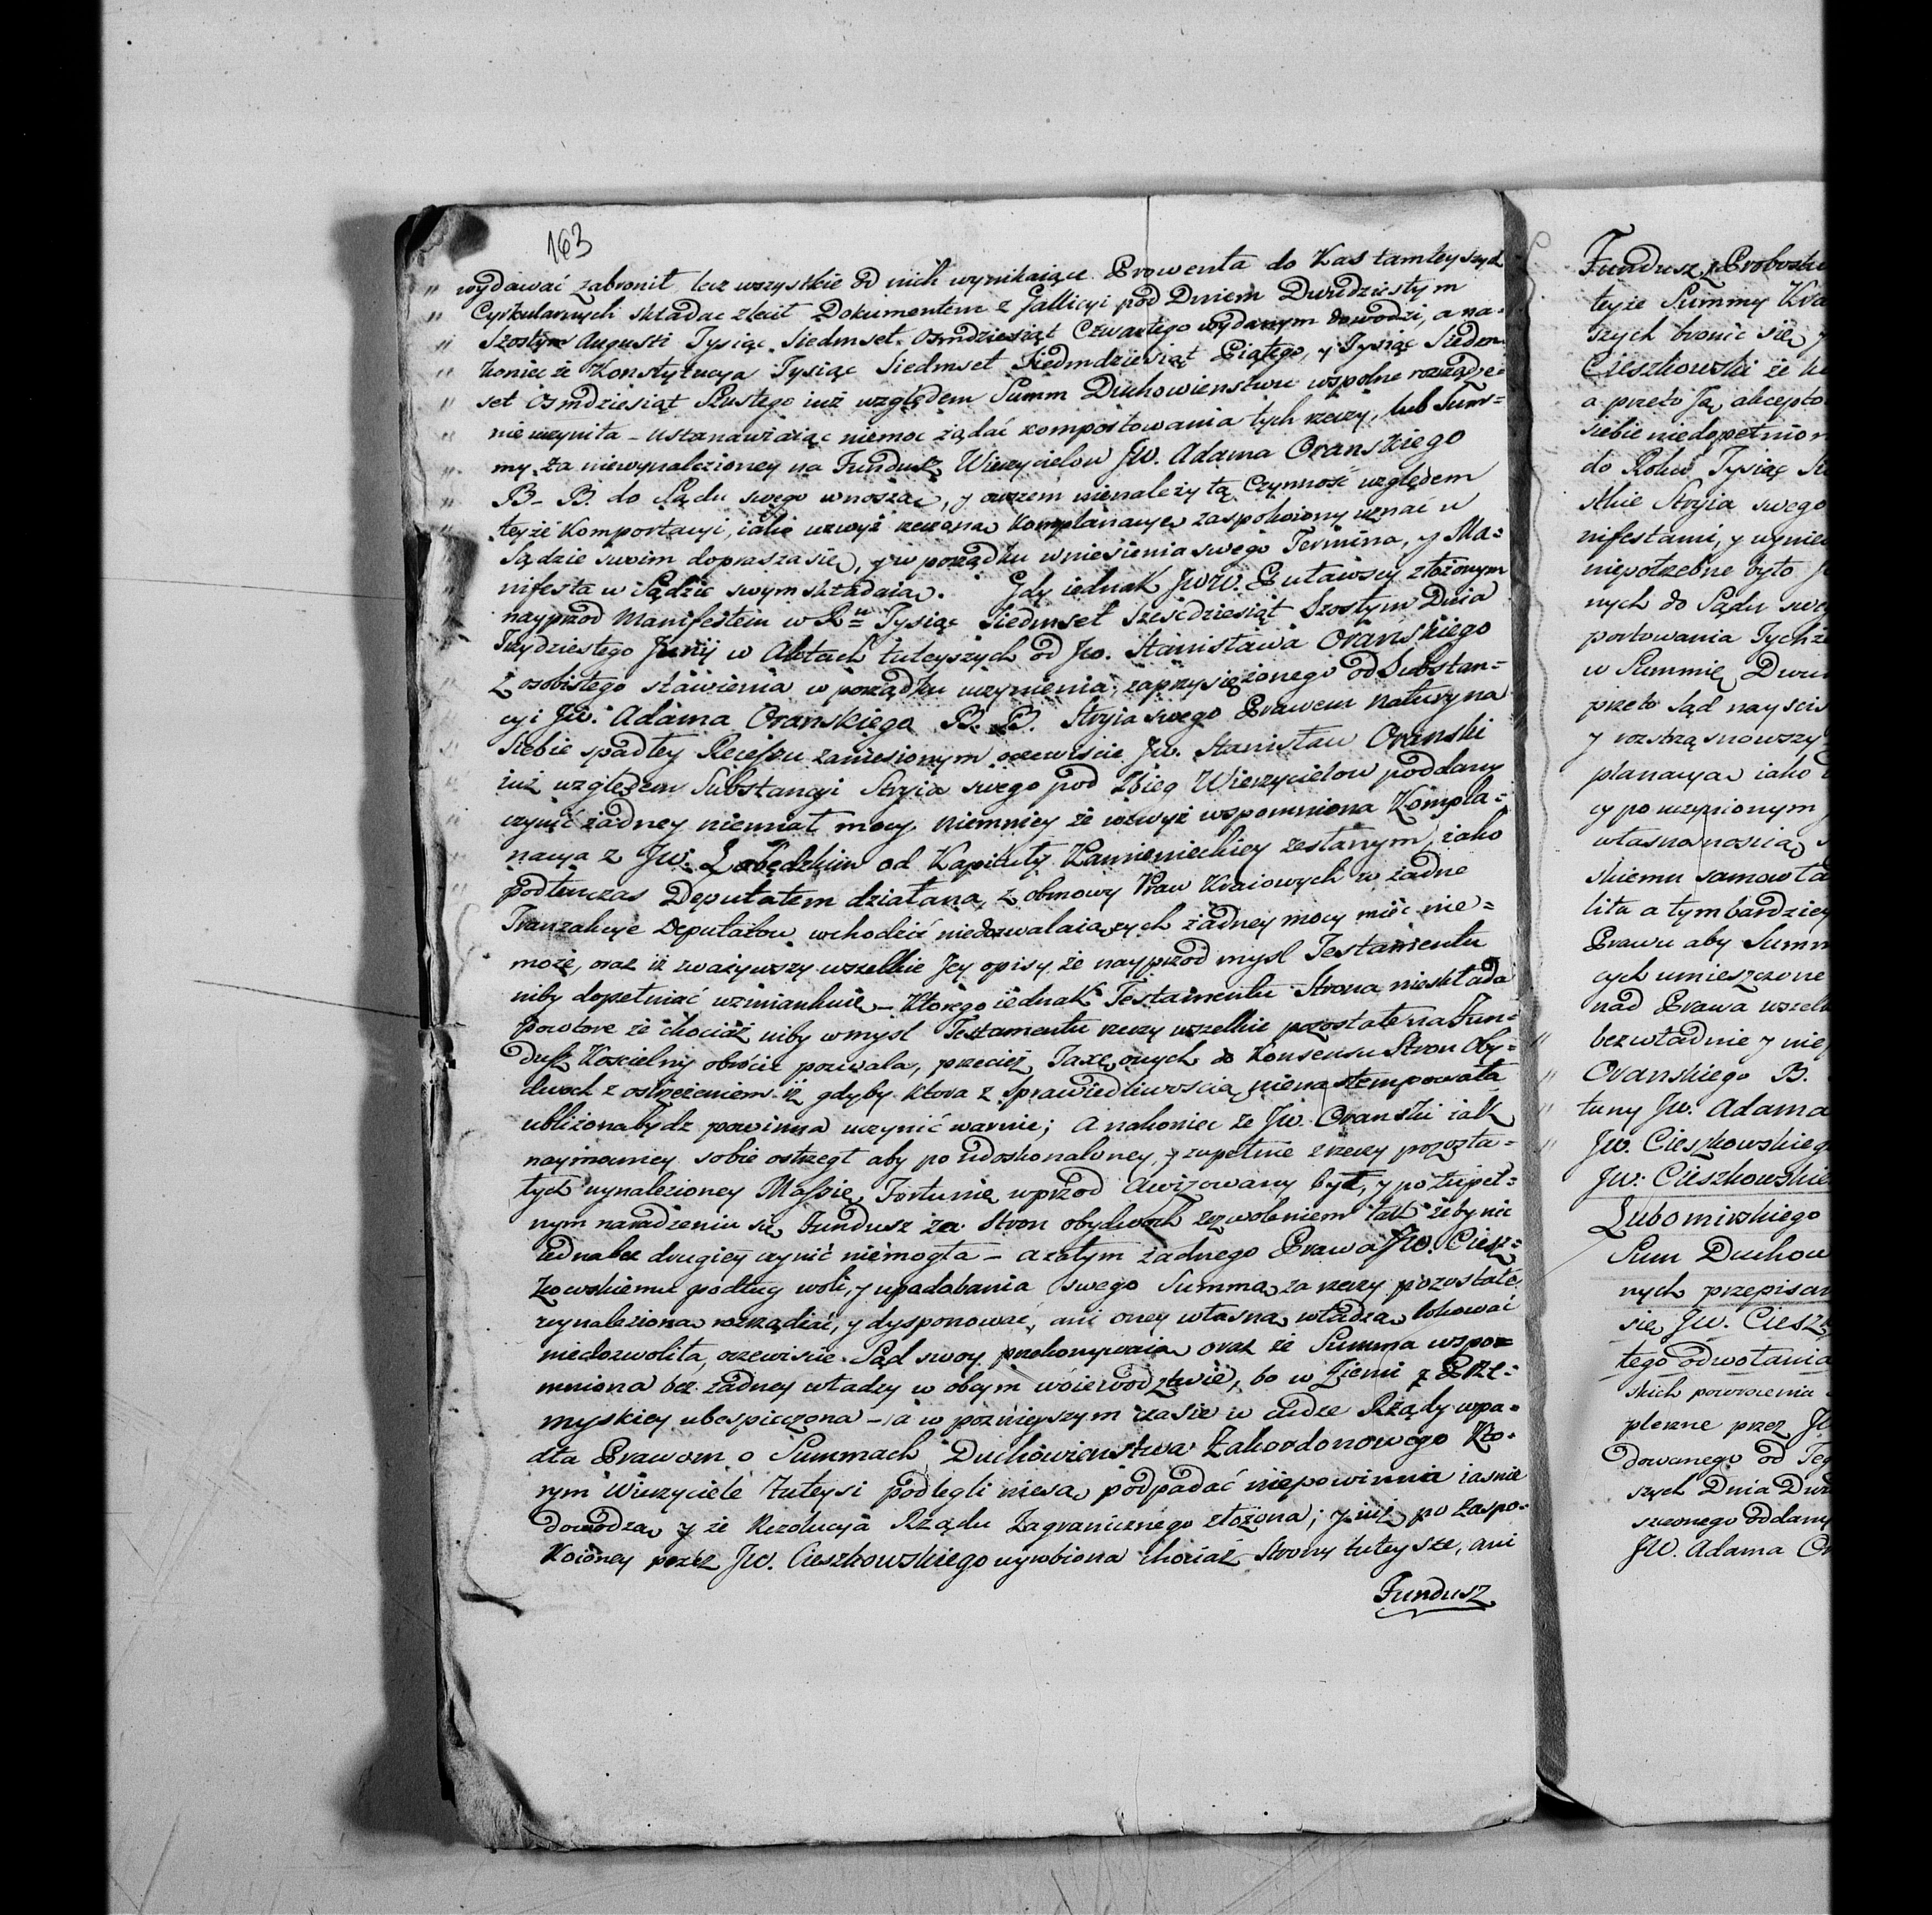 163
" wydawać zabronił lecz wszystkie od nich wynikaiące Prowenta do Kas tamteyszych
" Cyrkularnych składac zlecił Dokumentem z Gallicyi pod Dniem Dwudziestym
" Szostym Augusti Tysiąc Siedmset Osmdziesiąt Czwartego wydanym dowodzi, a na-
" koniec że Konstytucya Tysiąc Siedmset Siedmdziesiąt Piątego, y Tysiąc Siedm
" set Osmdziesiąt Szustego iuż względem Summ Duchowienstwu wspolne rozrządze-
" nie uczyniła - ustanawiaiąc niemoc żądać komportowania tych rzeczy, lub Sum=
" my za niewynalezioney na Fundusz Wierzycielow Jw. Adama Oranskiego
" B- B. do Sądu swego wnosząc, y owszem nienależytą Czynność względem
" teyże Komportacyi, iako wzwyż rzeczoną Komplanacyą zaspokoiony uznać w
" Sądzie swoim doprasza się, y w porządku wniesienia swego Termina, y Ma=
" nifesta w Sądzie swym składaią. Gdy iednak Jww. Puławscy złożonym
nayprzod Manifestem w Rᵘ= Tysiąc Siedmset Szescdziesiąt Szostym Dnia
Trzydziestego Junij w Aktach tuteyszych od Jw. Stanisława Oranskiego
z osobistego stawienia w porządku uczynienia, zaprzysiężonego od Substan=
cyi Jw. Adama Oranskiego B. B. Stryia swego Prawem natury na
siebie spadłey Recessu zaniesionym oczewiscie Jw. Stanisław Oranski
iuż względem Substancyi Stryia swego pod Zbieg Wierzycielow poddaney
czynić żadney niemiał mocy. niemniey że wzwyż wspomniona Kompla=
nacya z Jw. Łobędzkim od Kapituły Kamienieckiey zesłanym, iako
podtenczas Deputatem działana, z obmowy Praw Kraiowych w żadne
Tranzakcye Deputatow wchodzić niedozwalaiących żadney mocy mieć nie=
może, oraz iż zważywszy wszelkie Jey opisy że nayprzod mysl Testamentu
niby dopełniać wzmiankuie - Ktorego iednak Testamentu Strona nieskłada
powtore że chociaż niby w mysl Testamentu rzeczy wszelkie pozostałe na Fun-
dusz Koscielny obrocic pozwala, przecież Taxę onych do Konsensu Stron Oby-
dwoch z ostrzeżeniem iż gdyby ktora z sprawiedliwoscią nienastempowała
ubliżona bydz powinna uczynić warnie; A nakoniec że Jw. Oranski iak
naymocniey sobie ostrzegł aby po udoskonaloney, y zupełnie z rzeczy pozosta=
łych wynalezioney Massie Fortunie wprzod awizowany był, y po zupeł=
nym naradzeniu się Fundusz za Stron obydwoch zezwoleniem tak żeby nic
iedna bez drugiey czynić niemogła - a zatym żadnego Prawa Jw. Ciesz=
kowskiemu podług woli, y upodobania swego Summą za rzeczy pozostałe
wynalezioną rozrządzać, y dysponować, ani oney własną władzą lokować
niedozwoliła, oczewiscie Sąd swoy przekonywaią oraz że Summa wspo=
mniona bez żadney władzy w obcym woiewodztwie, bo w Ziemi z Prze-
myskiey ubespieczona - a w pozniejszym czasie w cudze Rządy wpa-
dła Prawom o Summach Duchowienstwa Zakordonowego Kto-
rym Wierzyciele Tuteysi podlegli niesą podpadać niepowinna iasnie
dowodzą y że Rezolucya Rządu Zagranicznego złożona; y iuż po zaspo-
koioney przez Jw. Cieszkowskiego wyrobiona chociaż Strony tuteysze, ani
Fundusz
Fundusz Probostw
teyże Summy Kra
szych bronić się y
Cieszkowski że
a przeto Ją akcepto
siebie niedopełnion
do Roku Tysiąc Si
skie Stryia swego
nifestami, y wynie
niepotrzebne było
nych do Sądu swe
portowania Tychże
w Summie Dwu
przeto Sąd nayscis
y rozstrząsnowszy
planacya iako
cy po uczynionym
własnonoscią
skiemu samowła
liła a tym bardziey
Prawu aby Summ
cych umieszczone
nad Prawa wszel
" bezwładnie y nie
" Oranskiego B.
" tuny Jw. Adama
" Jw. Cieszkowskieg
Jw. Cieszkowskie
Lubomirskiego
Sum Duchow
nych przepisan
się Jw. Ciesz
tego odwołania
skich powrocenia
plenne przez Jw
dowanego od Teg
szych Dnia Dwu
szeonego oddany
JW. Adama Or